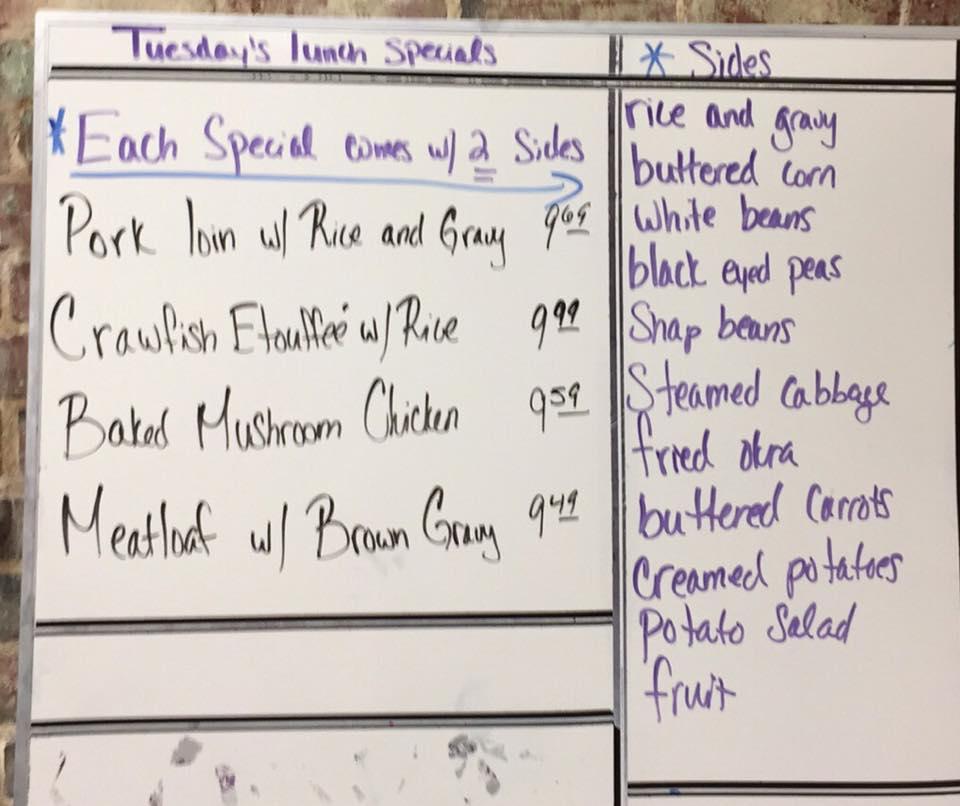 Tuesday's lunch specials
* Each Special comes w/ 2 Sides
Pork loin w/ Rice and Gravy 9.69
Crawfish Etouffeé w/ Rice 9.99
Baked Mushroom Chicken 9.59
Meatloaf w/ Brown Gravy 9.49
* Sides
rice and gravy
buttered corn
white beans
black eyed peas
Snap beans
Steamed Cabbage
fried okra
buttered Carrots
Creamed potatoes
Potato Salad
fruit